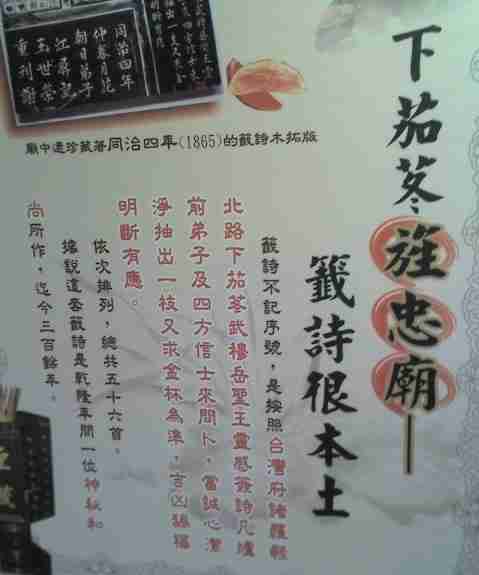 下茄苳旌忠廟—
籤詩很本土
籤詩不記序號，是按照台灣府諸羅縣
北路下茄苳武穆岳聖王靈感簽詩凡爐
前弟子及四方信士來問卜，當誠心潔
淨抽出一枝又求金杯為準，吉凶禍福
明斷有應。
依次排列，總共五十六首。
據說這套籤詩是乾隆年間一位神秘和
尚所作，迄今三百餘年。
同治四年
仲春月花
朝日弟子
廟中還珍藏著同治四年(1865)的籤詩木拓版